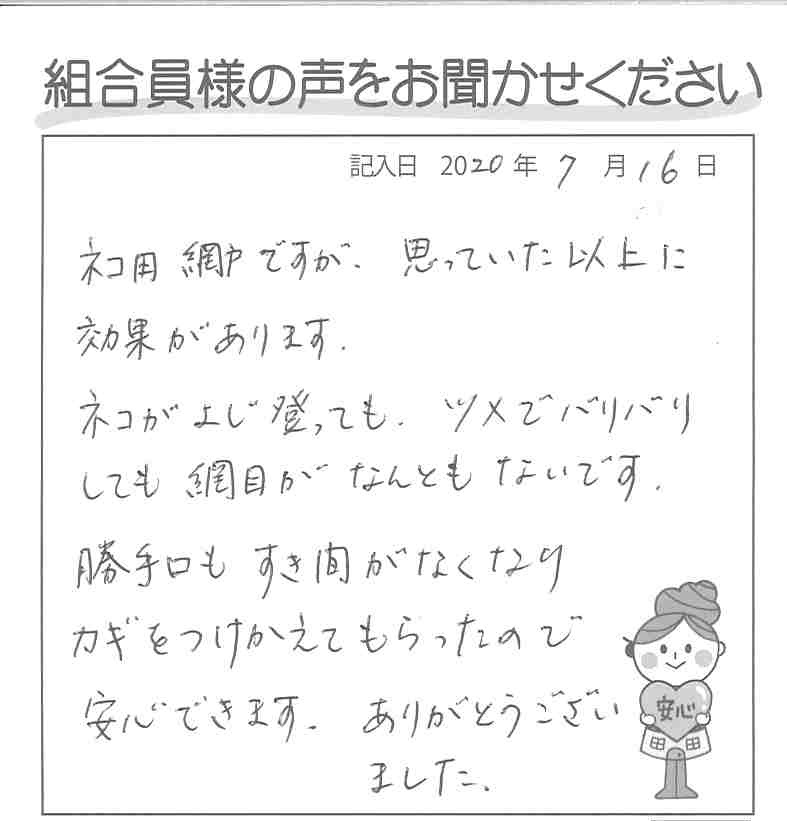 組合員様の声をお聞かせください
記入日 2020年 7月 16日
ネコ用 網戸ですが、思っていた以上に
効果があります.
ネコがよじ登っても、ツメでバリバリ
しても 網目が なんとも ないです.
勝手口も すき間がなくなり
カギをつけかえてもらったので
安心できます. ありがとうござい
ました.
安心